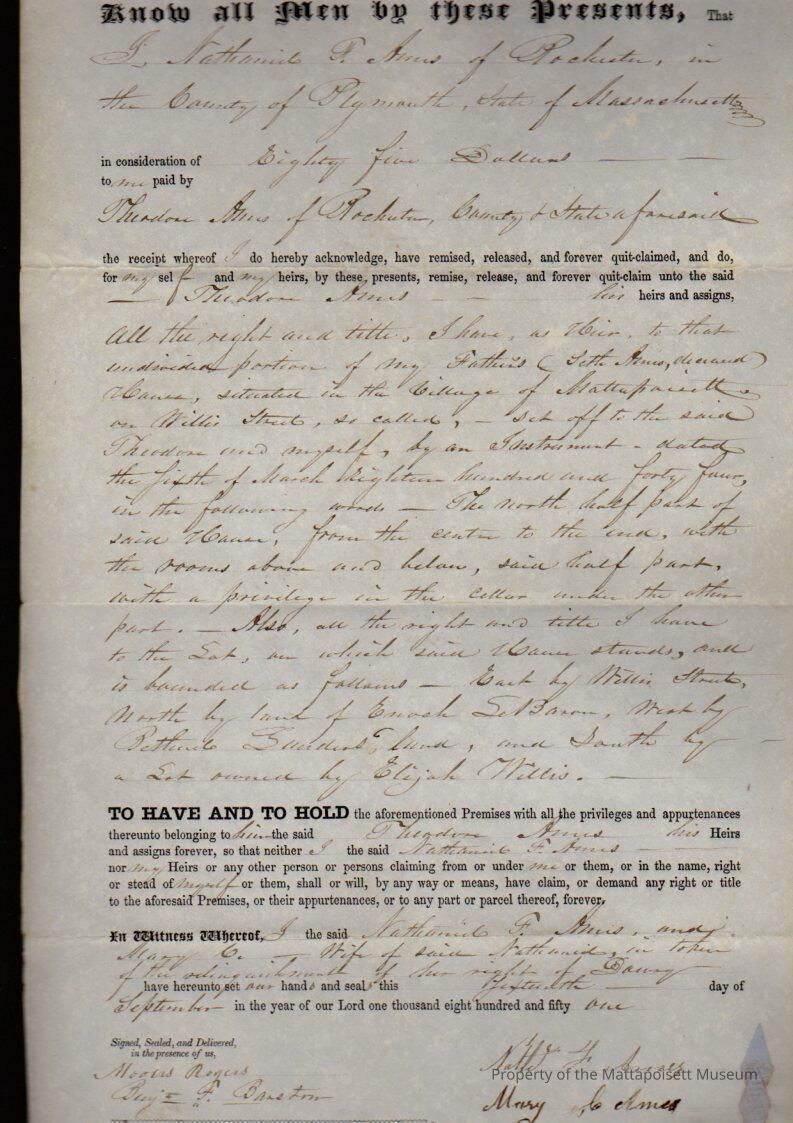 Know all Men by these Presents, That
I, Nathaniel F. Ames of Rochester, in
the County of Plymouth, State of Massachusetts
in consideration of Eighty five Dollars
to me paid by
Theodore Ames of Rochester, County & State aforesaid
the receipt whereof I do hereby acknowledge, have remised, released, and forever quit-claimed, and do,
for my self and my heirs, by these presents, remise, release, and forever quit-claim unto the said
— Theodore Ames - - his heirs and assigns,
All the right and title, I have, as Heir, to that
undivided portion of my Father's (Seth Ames, deceased)
House, situated in the Village of Mattapoisett
on Willis Street, so called, - set off to the said
Theodore and myself, by an Instrument - dated
the sixth of March Eighteen hundred and forty four,
in the following words — The north half part of
said House, from the centre to the end, with
the rooms above and below, said half part,
with a privilege in the cellar under the other
part. — Also, all the right and title I have
to the Lot, on which said House stands, and
is bounded as follows — East by Willis Street,
North by land of Enoch LeBaron, West by
land, and South by
a Lot owned by Elijah Willis. —
TO HAVE AND TO HOLD the aforementioned Premises with all the privileges and appurtenances
thereunto belonging to him the said Theodore Ames his Heirs
and assigns forever, so that neither I the said Nathaniel F. Ames
nor my Heirs or any other person or persons claiming from or under me or them, or in the name, right
or stead of myself or them, shall or will, by any way or means, have claim, or demand any right or title
to the aforesaid Premises, or their appurtenances, or to any part or parcel thereof, forever.
In Witness Whereof, I the said Nathaniel F. Ames, and
Mary C. — Wife of said Nathaniel, in token
of the relinquishment of her right of Dowry
have hereunto set our hands and seals this sixteenth day of
September in the year of our Lord one thousand eight hundred and fifty one
Signed, Sealed, and Delivered,
in the presence of us,
Moores Rogers
Benj. F. Barstow
Nath'l F. Ames
Property of the Mattapoisett Museum
Mary C Ames